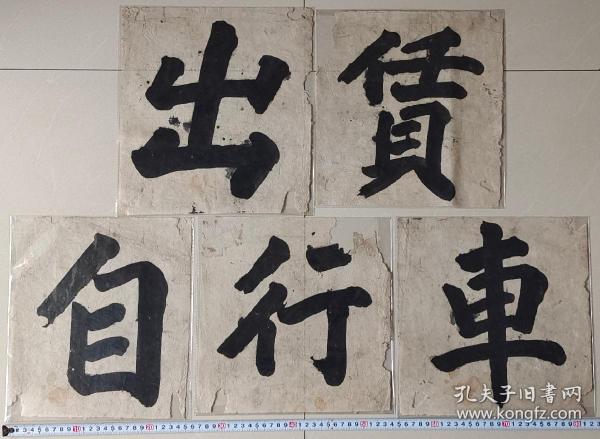 出賃
自行車
孔夫子旧書网
www.kongfz.com